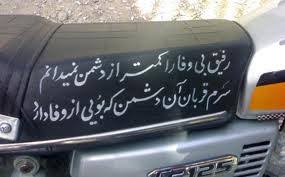 رفیق بی وفا را کمتر از دشمن نمیدانم
سرم قربان آن دشمن که بویی از وفا دارد
125